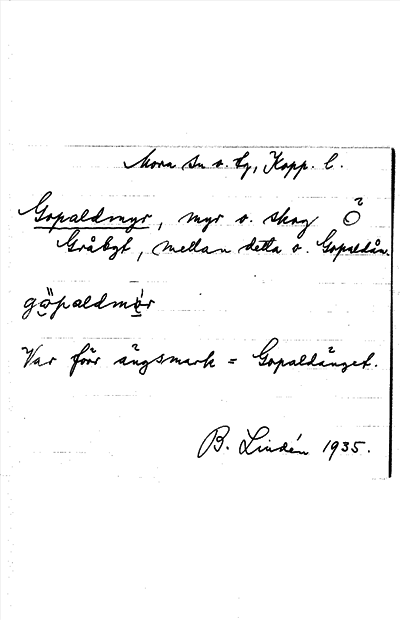 Mora sn o. by, Kopp. l.
Gopaldmyr, myr o. skog Ö
Gråbyt, mellan detta o. Gopaldån.
Var förr ängsmark = Gopaldänget.
B. Lindén 1935.